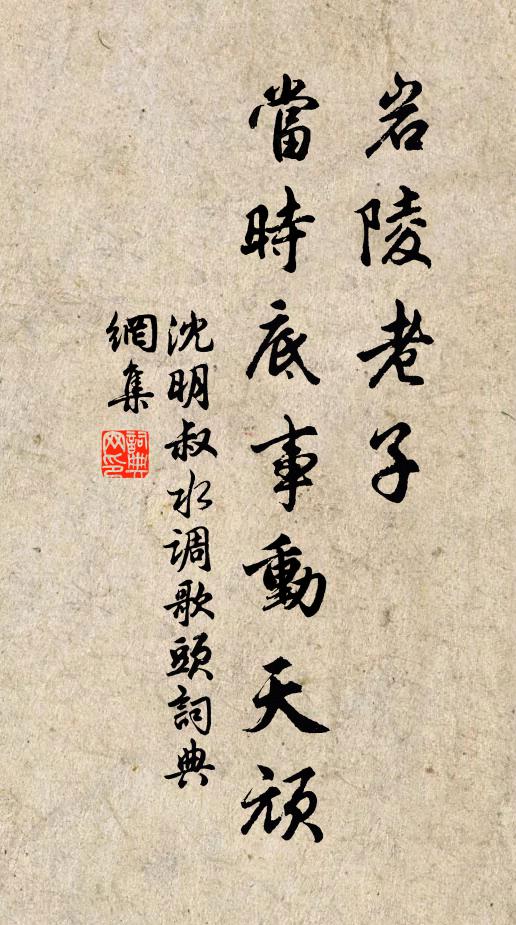 岩陵老子
當時底事動天顏
沈明叔水调歌頭詞典
網集
詞典
网印